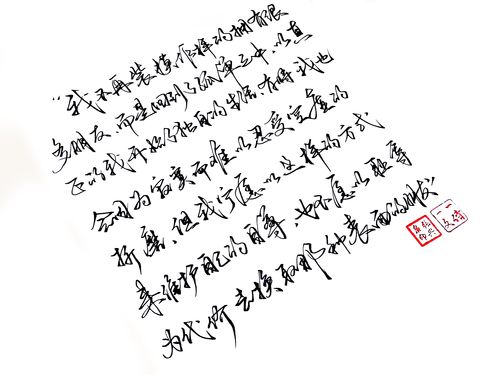 “我不再装模作样的拥有很
多朋友，而是回到了孤单之中，以真
正的我开始了独自的生活，有时我也
会因为寂寞而难以忍受空虚的
折磨，但我宁愿以这样的方式
来维护自己的自尊，也不愿以耻辱
为代价去换取那种表面的朋友”